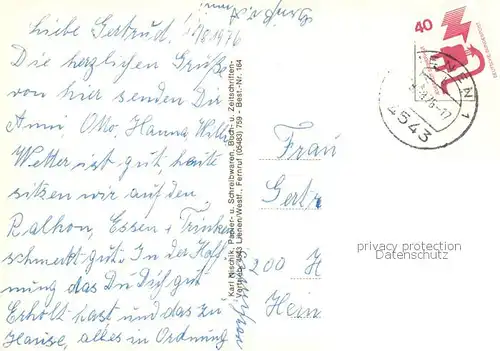 Liebe Gertrud! 9/8.1976
Die herzlichen Grüße
von hier senden Dir
Anni, Otto, Hanna Willi
Wetter ist gut, heute
sitzen wir auf den
Balkon, Essen + Trinken
schmeckt gut. In der Hoff-
nung das Du Dich gut
Erholt hast und das zu
Hause, alles in Ordnung
Karl Nischik, Papier- u. Schreibwaren, Buch- u. Zeitschriften-
Vertrieb, 4543 Lienen/Westf., Fernruf (05483) 759 - Best.-Nr. 164
40
DEUTSCHE BUNDESPOST
LIENEN 1
4543
Frau
Gertr
200 H
Hern
privacy protection
Datenschutz